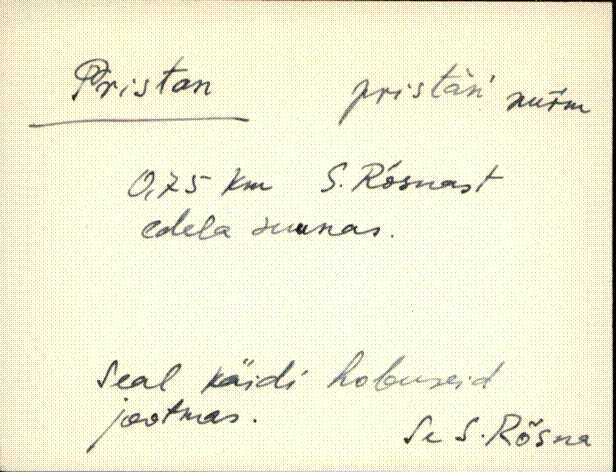 Pristan pristäń nurm
0,75 km S. Rõsnast
edela suunas.
Seal käidi hobuseid
jootmas.
Se S. Rõsna